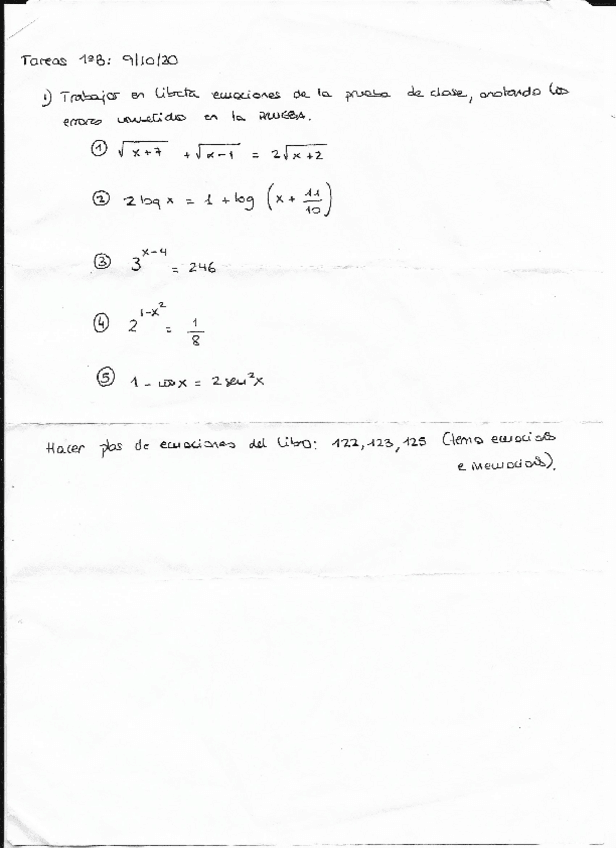 Tareas 1ºB: 9/10/20
1) Trabajar en libreta ecuaciones de la prueba de clase, anotando los
errores cometidos en la PRUEBA.
① √(x+7) + √(x-1) = 2√(x+2)
② 2 log x = 1 + log (x + 11/10)
③ 3^(x-4) = 246
④ 2^(1-x²) = 1/8
⑤ 1 - cos x = 2 sen²x
Hacer pbs de ecuaciones del libro: 122, 123, 125 (tema ecuacions
e inecuacions).